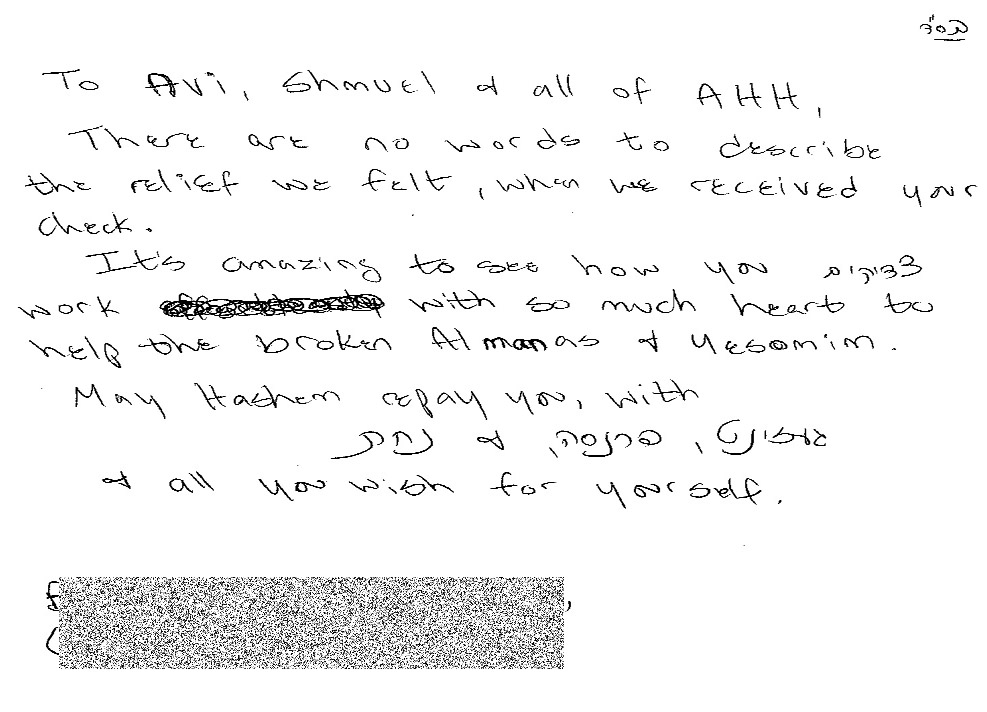 בס"ד
To Avi, Shmuel & all of AHH,
There are no words to describe
the relief we felt, when we received your
check.
It's amazing to see how you צדיקים
work with so much heart to
help the broken Almanas & Yesomim.
May Hashem repay you, with
געזונט, פרנסה, & נחת
& all you wish for yourself.